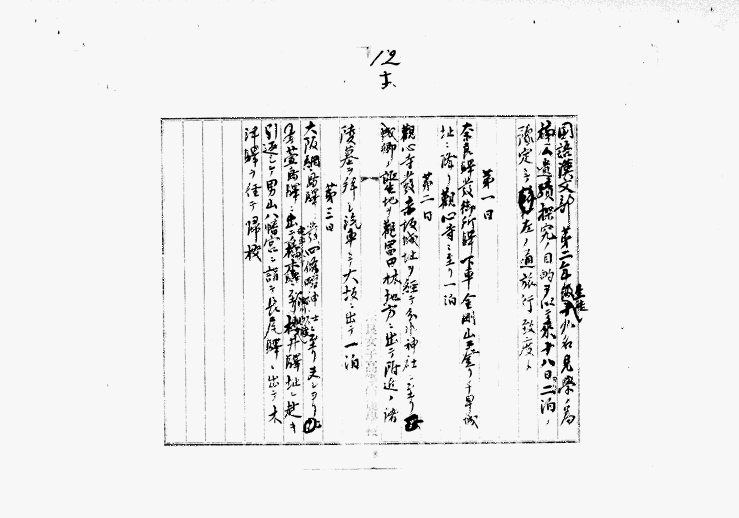 12
国語漢文部第二年級生徒十九名見学ノ為
楠公遺蹟探究ノ目的ヲ以テ来十八日二泊ノ
豫定ニテ左ノ通旅行致度
第一日
奈良驛発御所驛下車金剛山ニ登リ千早城
址ニ降リ観心寺ニ至リ一泊
第二日
観心寺発赤坂城址ヲ経テ水神社ニ至リ
誕生地ヲ観富田林地方ニ出テ附近ノ諸
陵墓ヲ拝シ汽車ニテ大坂ニ出テ一泊
第三日
大阪網島驛四條畷神社ニ至リ
驛ニ出テ桜井驛址ニ赴キ
引返シテ男山八幡宮ニ詣テ長尾驛ニ出テ木
津驛ヲ経テ帰校